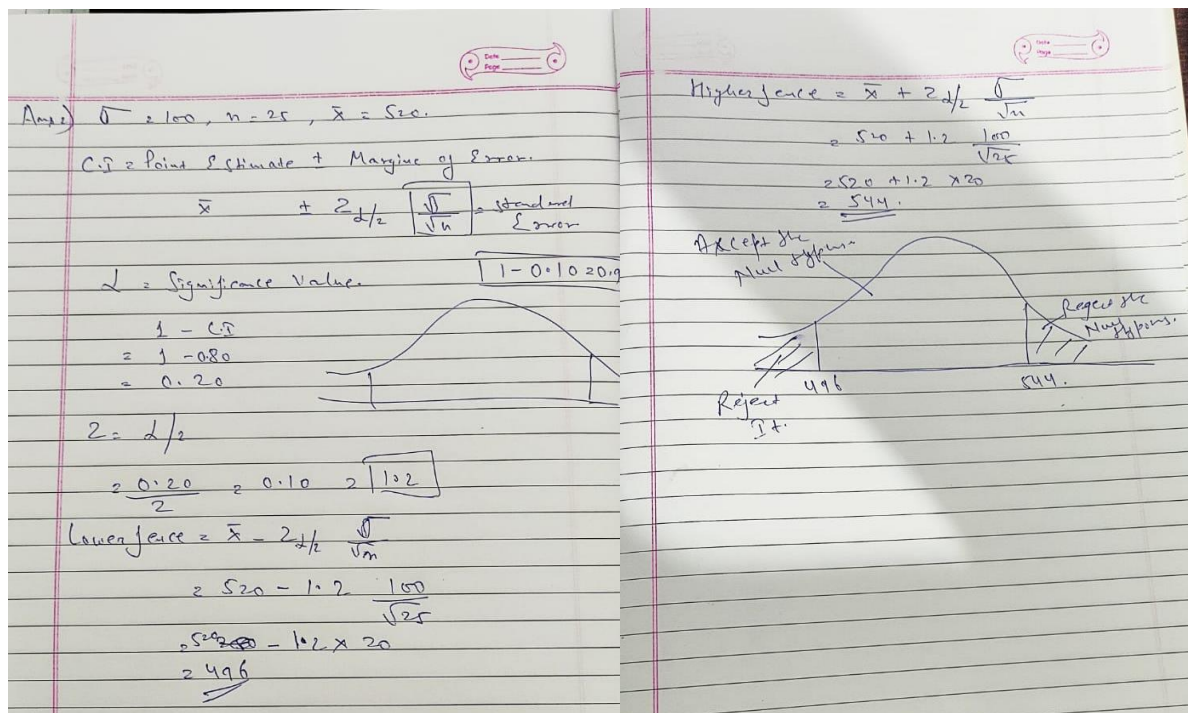 Date
Page
Ans 2) σ = 100, n = 25, x̄ = 520.
C.I = Point Estimate ± Margine of Error.
x̄ ± Z α/2 σ/√n = standard
Error
α = Significance Value.
1 - 0.10 = 0.9
1 - C.I
= 1 - 0.80
= 0.20
Z = α/2
= 0.20/2 = 0.10 = 1.2
Lower fence = x̄ - Z α/2 σ/√n
= 520 - 1.2 100/√25
= 520 - 1.2 × 20
= 496
Date
Page
Higher fence = x̄ + Z α/2 σ/√n
= 520 + 1.2 100/√25
= 520 + 1.2 × 20
= 544.
Accept the
Null
Reject the
496
544.
Reject
It.